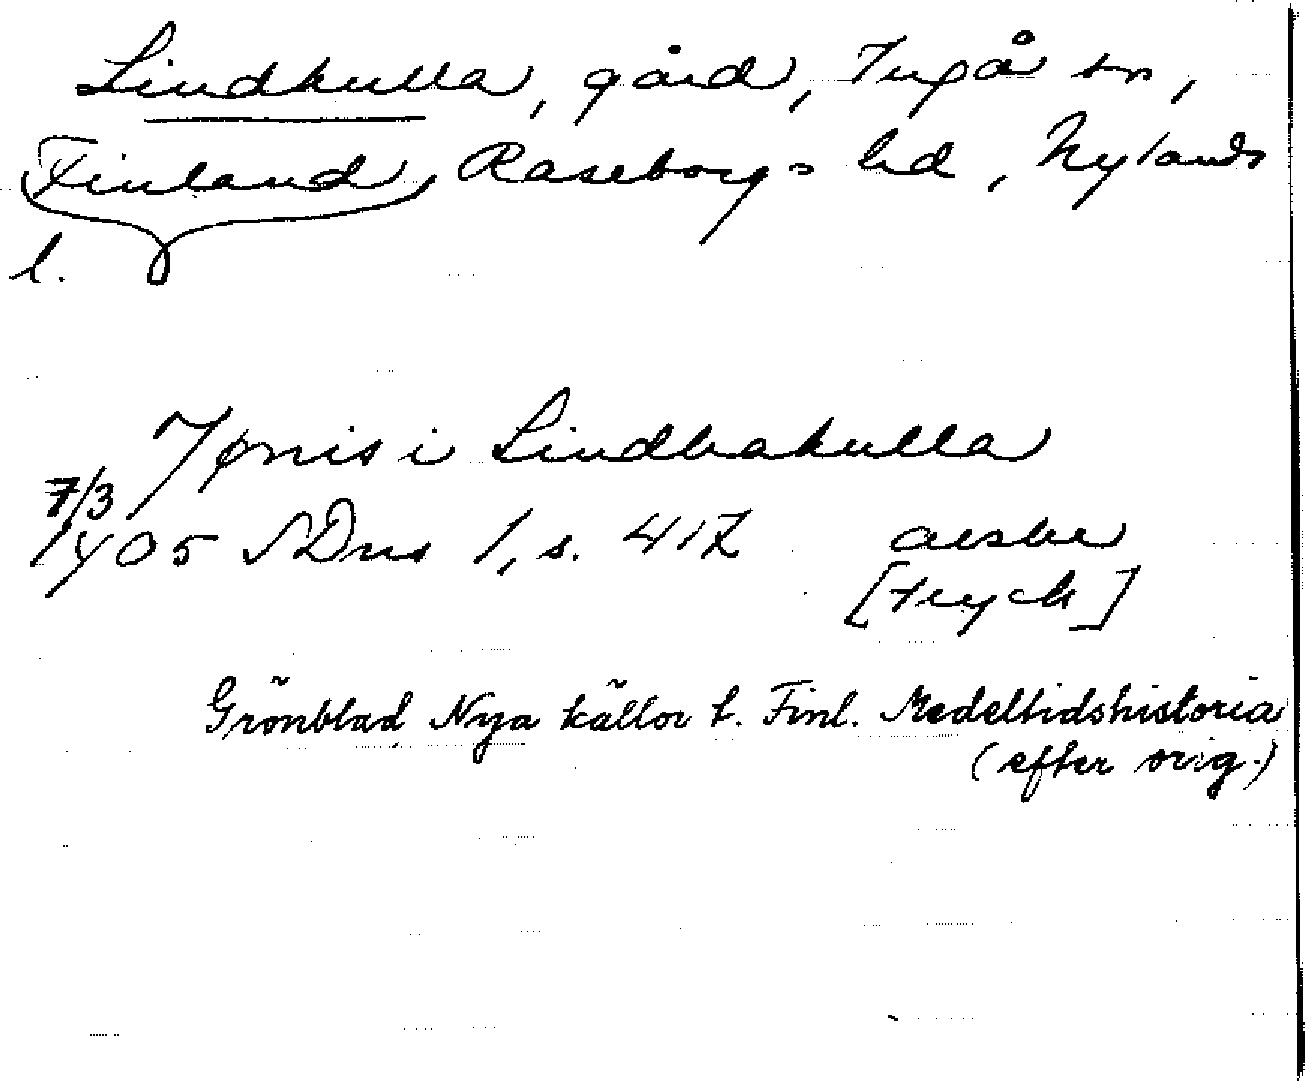 Lindkulla, gård, Ingå sn,
Finland, Raseborgs hd, Nylands
l.
Jønis i Lindhakulla
7/3
1405 SDns 1, s. 417 avskr
[tryck]
Grönblad Nya källor t. Finl. Medeltidshistoria
(efter orig.)